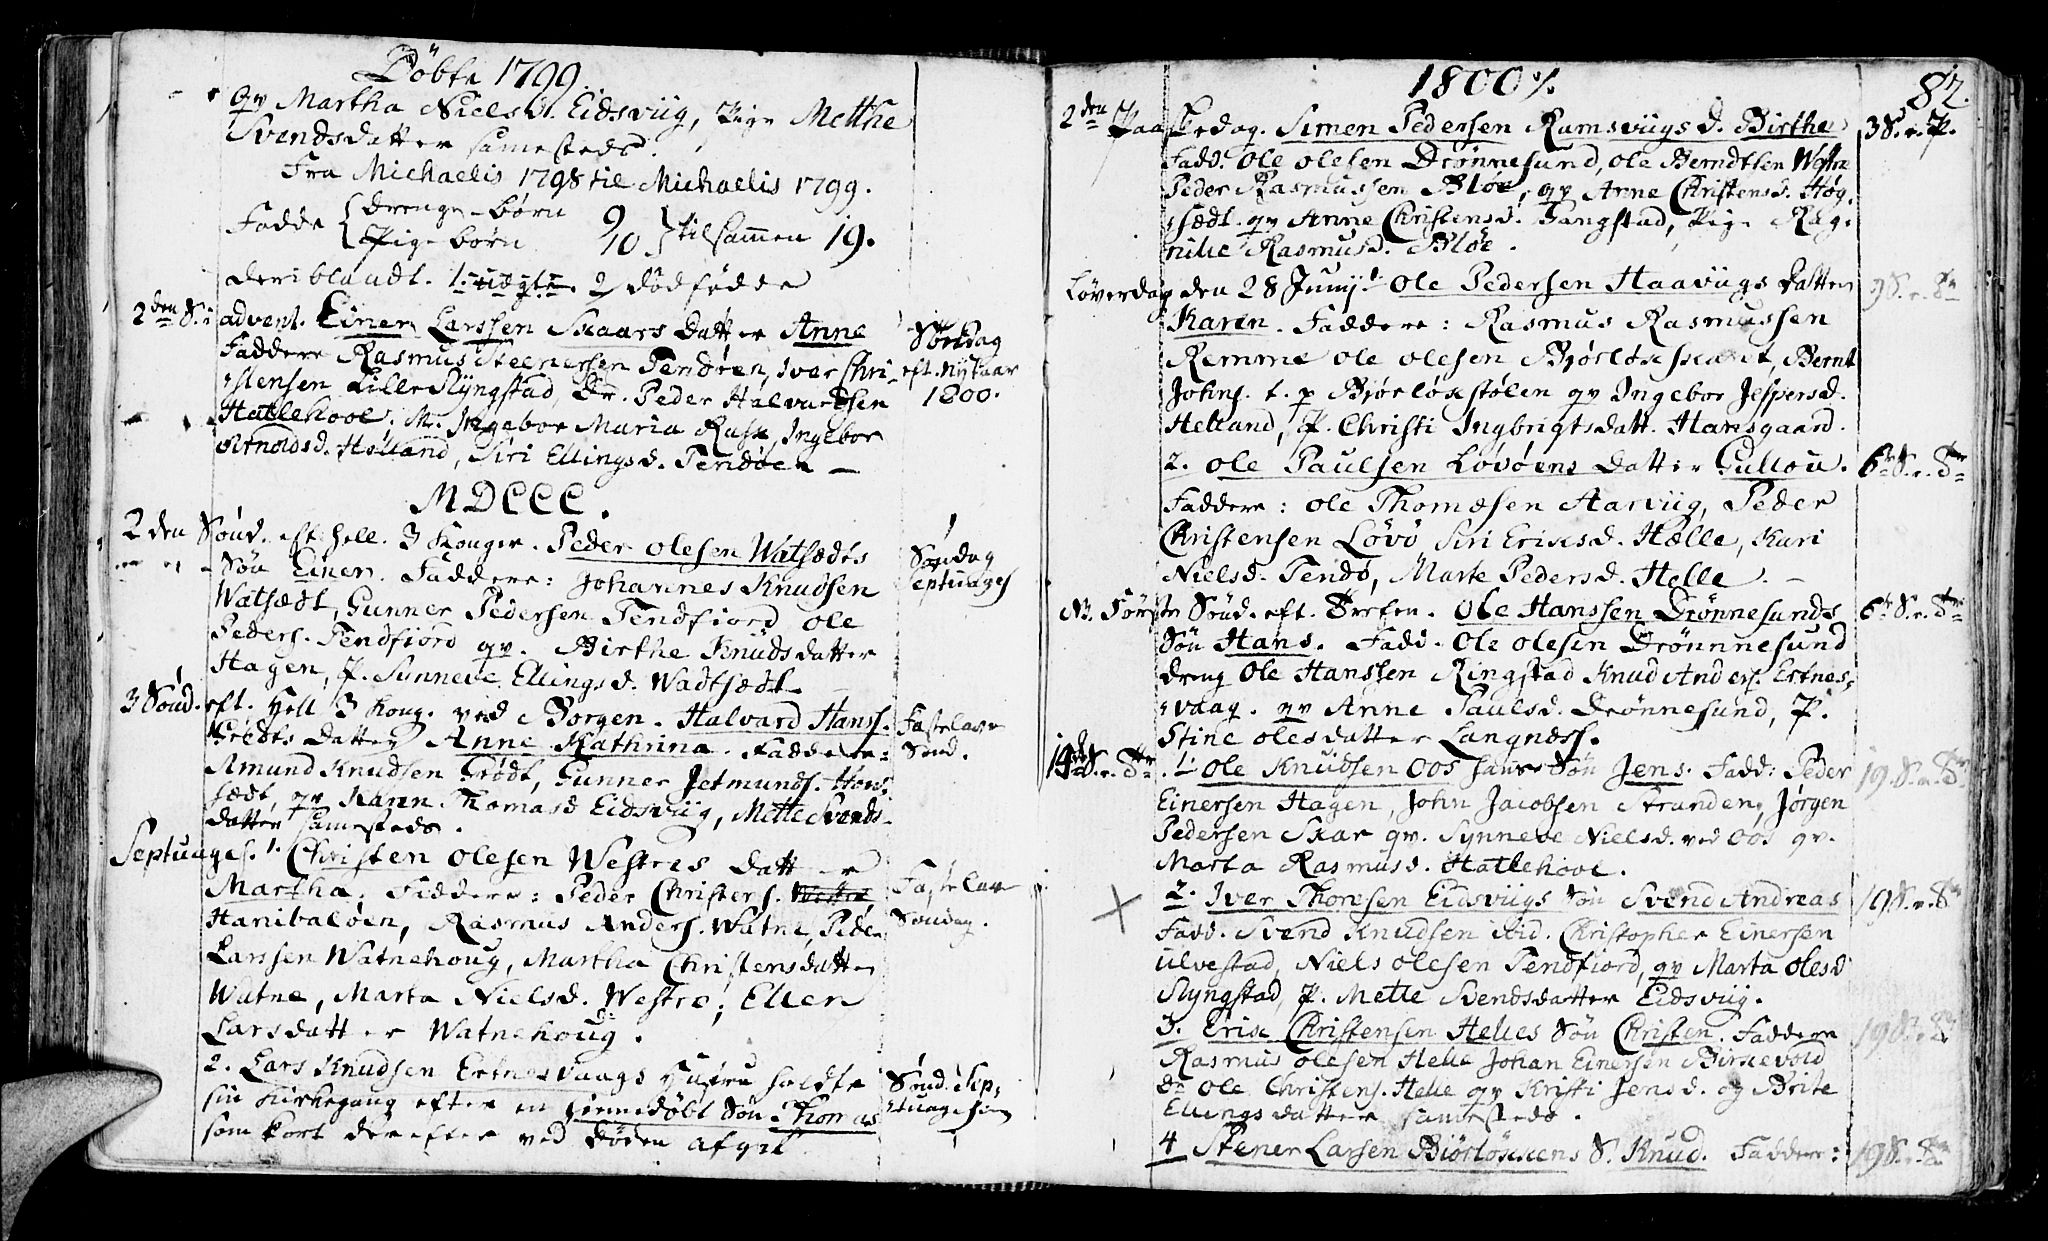 Döbte 1799.
qv Martha Nielsd. Eidsviig, Pige Metthe
Svendsdatter samesteds.
Fra Michaelis 1798 til Michaelis 1799.
Födde drenge-börn 9
Pige börn 10 tilsammen 19.
deriblandt 1 uægte 2 dödfödde
2den S. i advent. Einer Larssen Skaars datter Anne
Söndag
Faddere Rasmus Steenersen Tendöen, Iver Chri-
eft. Nytaar
stensen Lille Slyngstad, Dr. Peder Halvardsen
1800.
Hatlehoel. M. Ingebor Maria Rask, Ingebor
Arnoldsd. Helland, Siri Ellingsd. Tendöen
MDCCC.
2 den Sönd. eft. hell. 3 Konger. Peder Olesen Watsædts
Söndag
Sön Einer. Faddere: Johannes Knudsen
Septuages
Watsædt, Gunner Pedersen Tendfiord Ole
Peders. Tendfiord qv. Birthe Knudsdatter
Hagen, P. Synneve Ellingsd. Wadtsædt
3 Sönd. eft. Hell 3 Kong. ved Borgen. Halvard Hanss.
Fastelavn
Grödts datter Anne Kathrina. Faddere:
Sönd.
Amund Knudsen Grödt, Gunner Jetmunds.
sædt, qv Karen Thomasd Eidsviig, Mette Svends-
datter samesteds.
Septuages. 1. Christen Olesen Westres datter
Fastelavn
Martha. Faddere: Peder Christens. Westre
Söndag.
Hanibalöen, Rasmus Anders. Watne, Peder
Larssen Watnehoug, Martha Christensdatter
Watne, Marta Nielsd. Westre, Ellen
Larsdatter Watnehoug.
2. Lars Knudsen Ertnesvaags Hustru holdte
Sönd. Sep-
sin Kirkegang efter en hiemedöbt Sön Thomas
tuagesim
som kort derefter ved Döden afgik
1800
82.
2den Paaskedag. Simen Pedersen Ramsviigs d. Birthe
3 S. e. P.
Fadd. Ole Olesen Drönnesund, Ole Berndtsen Westre
Peder Rasmussen Blöe, qv Anne Christensd. Hög-
sædt qv Anne Christensd. Tangstad, Pige Rag-
nilde Rasmusd. Blöe.
Löverdag den 28 Junij Ole Pedersen Haaviigs datter
Karen. Faddere: Rasmus Rasmussen
Remme Ole Olesen, Bernt
Johns. t. p Björlöxstölen qv Ingebor Jespersd.
Helland, P. Christi Ingbrigtsdatt. Harisgaard.
2. Ole Paulsen Lövöens datter Gullou.
6te S. e. Tr
Faddere: Ole Thomæsen Aarviig, Peder
Christensen Lövö Siri Eriksd. Hælle, Kari
Nielsd. Tendö, Marte Pedersd. Helle.
Ole Hanssen Drönnesunds
6te S. e. Tr
Sön Hans. Fadd. Ole Olesen Drönnesund
dreng Ole Hanssen Ringstad Knud Anders. Ertnes-
vaag. qv Anne Paulsd. Drönnesund, P.
Stine Olesdatter Langnæss.
19de S. e. Tr. 1. Ole Knudsen Oos hans Sön Jens. Fadd: Peder
19. S. e. Tr.
Einersen Hagen, John Jacobsen Stranden, Jörgen
Pedersen Skar qv. Synneve Nielsd. ved Oos qv.
Marta Rasmusd. Hatlehoel.
2. Iver Thoresen Eidsviigs Sön Svend Andreas
19 S. e. Tr
Fadd. Svend Knudsen ibid. Christopher Einersen
Ulvestad, Niels Olesen Tendfiord, qv Marta Olesd
Slyngstad, P. Mette Svendsdatter Eidsviig.
3. Erik Christensen Helles Sön Christen. Faddere
Rasmus Olesen Helle Johan Einersen Birkevold
dr Ole Christens. Helle qv Kristi Jensd. og Brite
Ellingsdatter samesteds.
4 Stener Larsen Biörlöxkens S. Knud. Faddere:
19 S. e. Tr